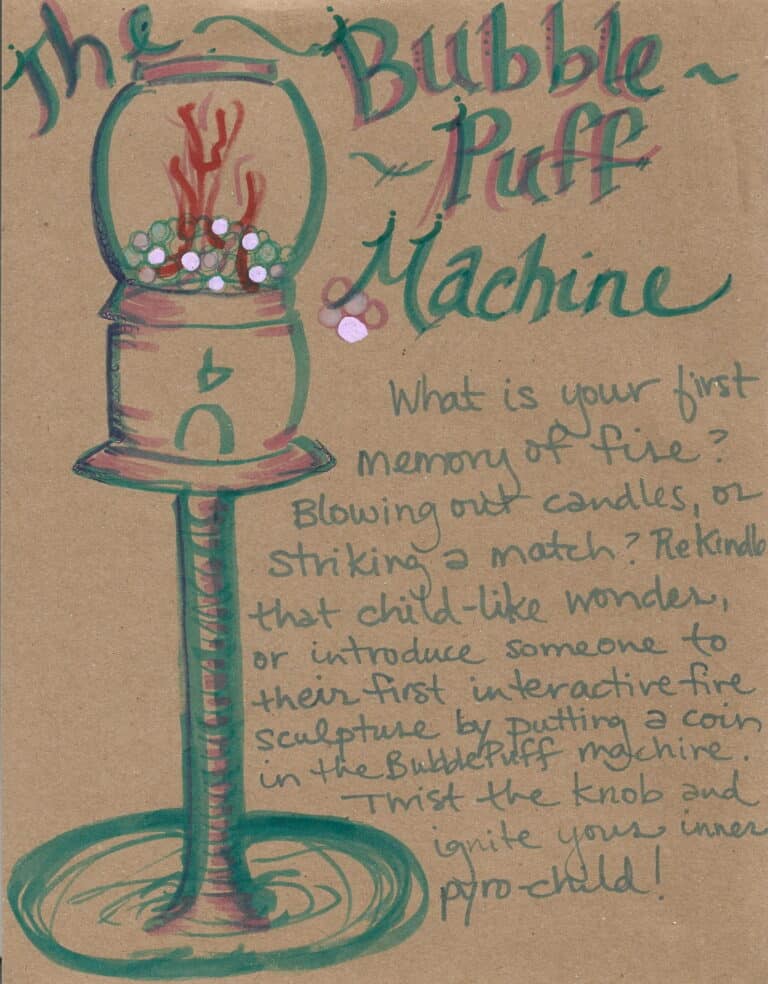 The Bubble~
~ Puff
Machine
What is your first
memory of fire?
Blowing out candles, or
striking a match? ReKindle
that child-like wonder,
or introduce someone to
their first interactive fire
sculpture by putting a coin
in the BubblePuff machine.
Twist the knob and
ignite your inner
pyro-child!